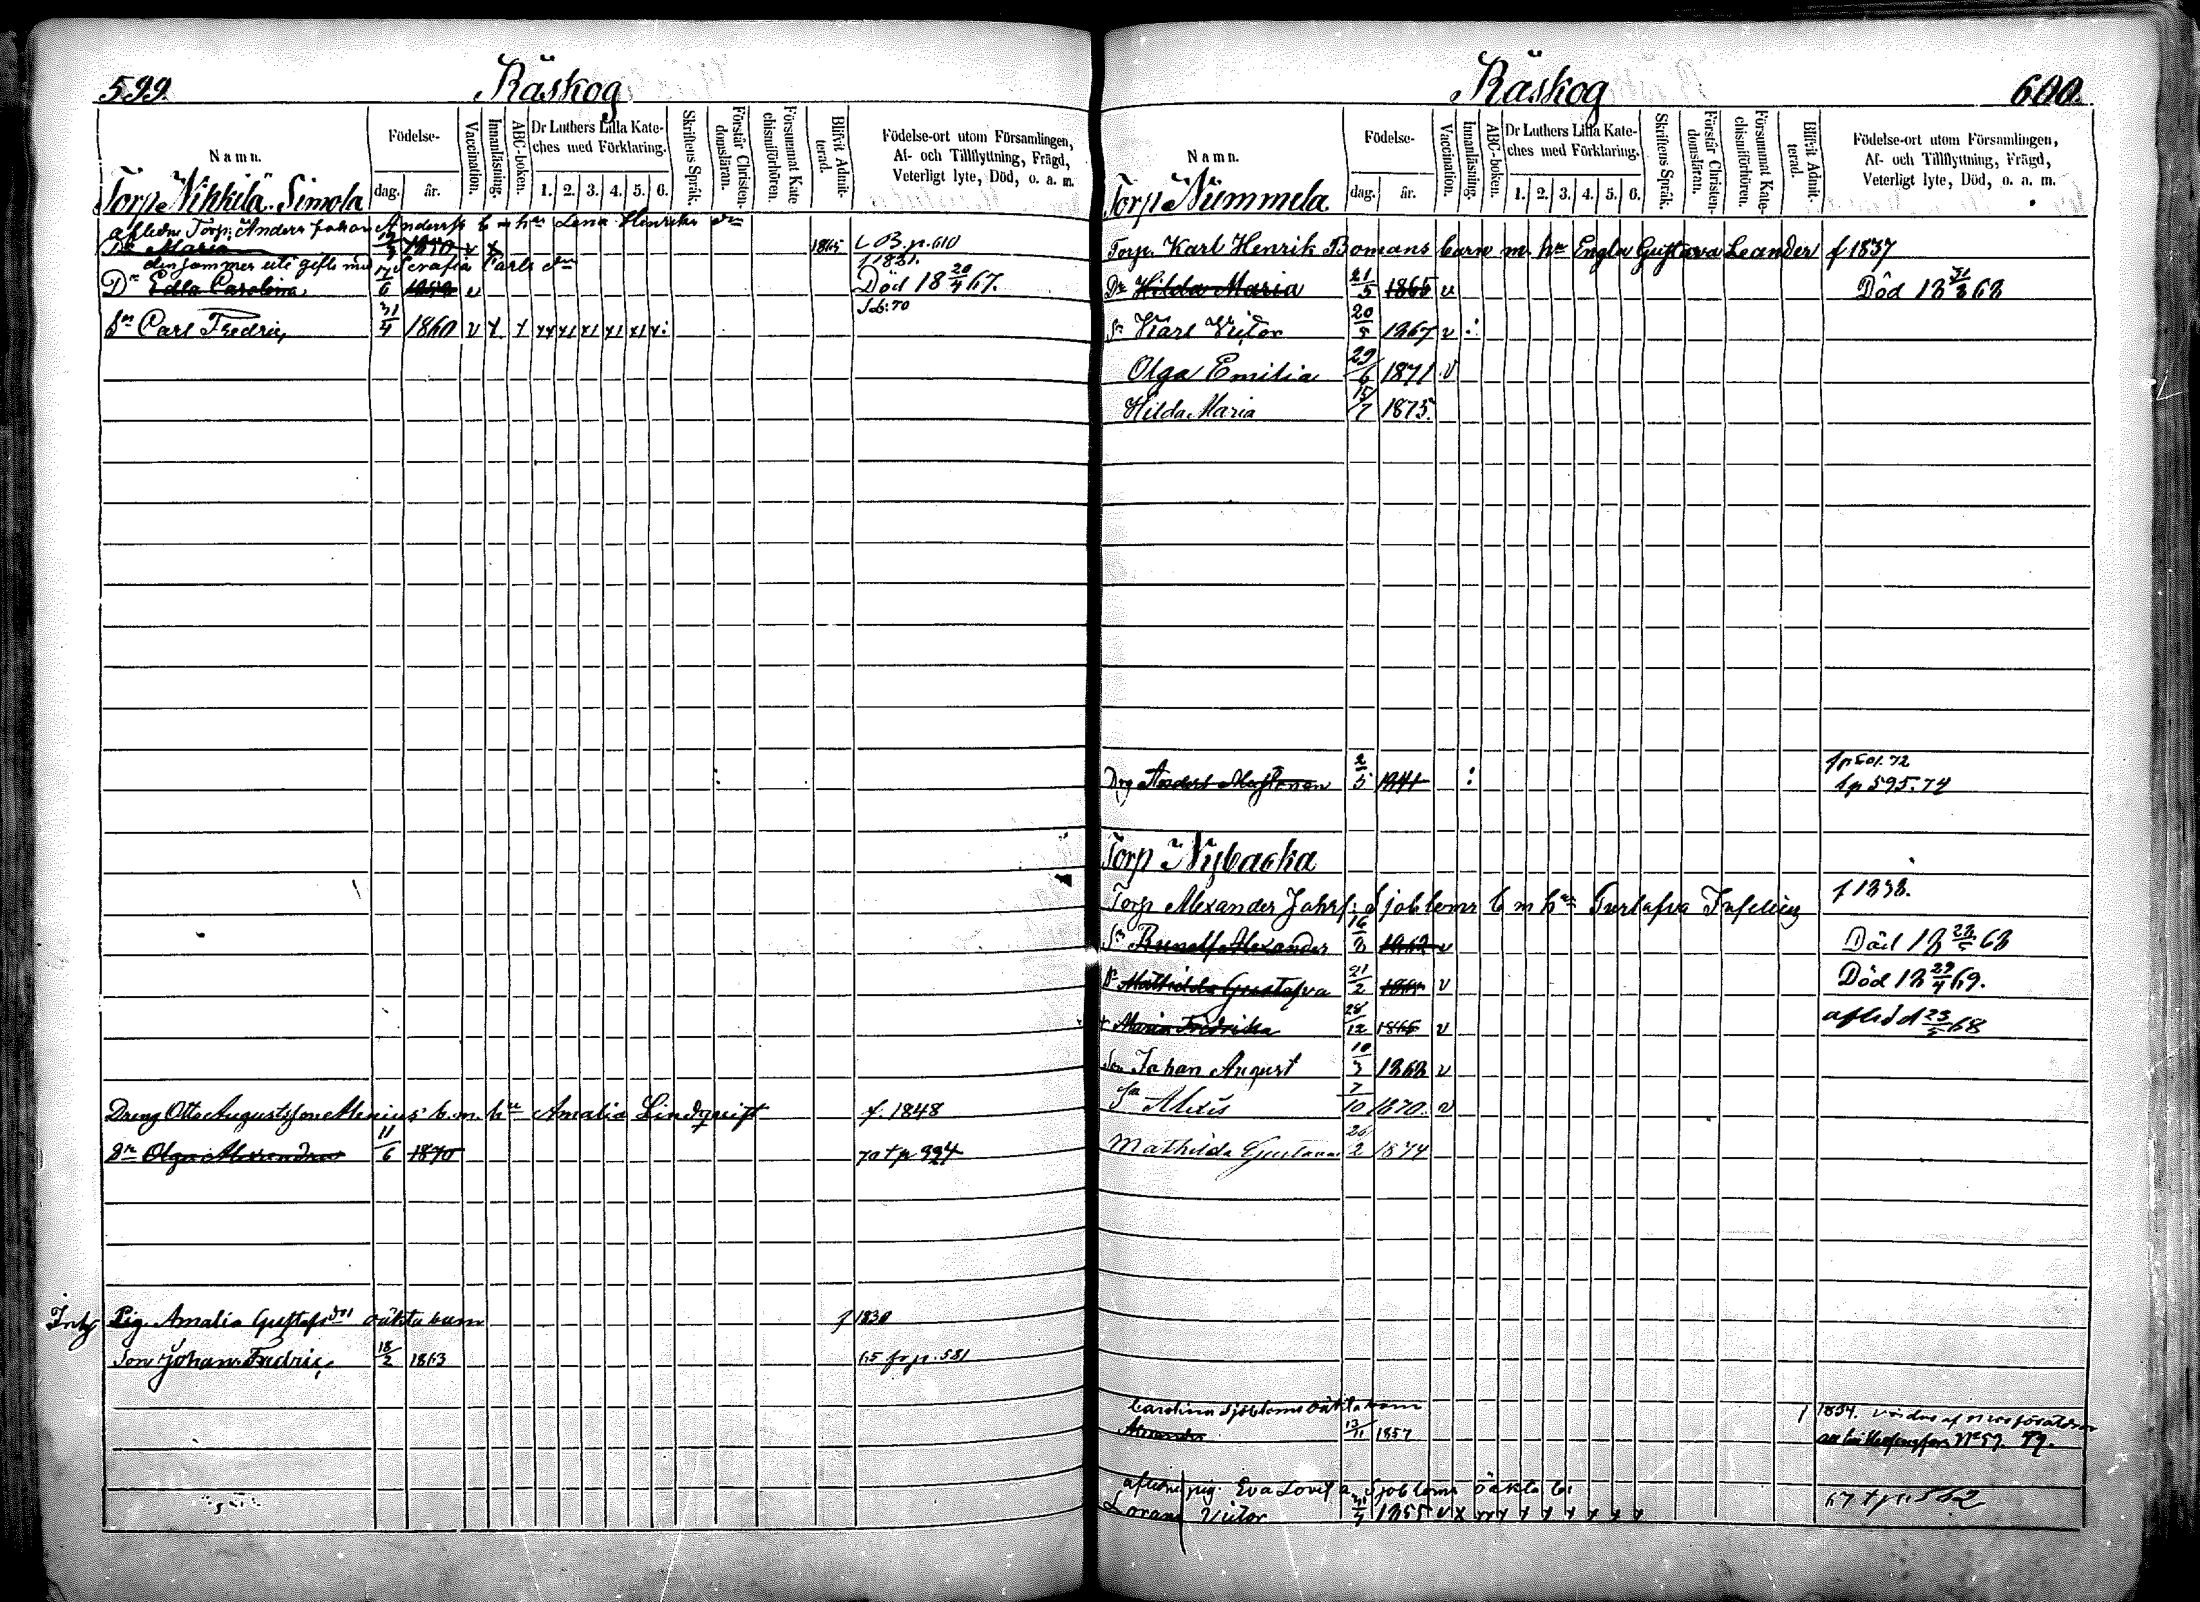 599.
Räskog
Namn.
Födelse-
dag.
år.
Vaccination.
Innanläsning.
ABC-boken.
Dr Luthers Lilla Kate-
ches med Förklaring.
1. 2. 3. 4. 5. 6.
Skriftens Språk.
Förstår Christen-
domsläran.
Försummat Kate
chismiförhören.
Blifvit Admit-
terad.
Födelse-ort utom Församlingen,
Af- och Tillflyttning, Frägd,
Veterligt lyte, Död, o. a. m.
Torp Nikkilä Simola
afledne Torp. Anders Johan Anderss b m hu Lena Henriks dr
Dr Maria 1850 v x 1865 LB. p. 610
densammes uti gifte med Serafia Carls dr f 1821.
Dr Edla Carolina 17/6 v Död 18 20/4 67.
Sn Carl Fredric 1860 v x x
Dreng Otto Augustsson Alenius b. m. hu Amalia Lindqvist f. 1848
Dr Olga Alexandra 11/6 1870 70 t p 994
Inh Pig. Amalia Gustafs dr oäkta barn f 1830
Son Johan Fredric 18/2 1863 65 fr p. 581
Räskog
600.
Namn.
Födelse-
dag.
år.
Vaccination.
Innanläsning.
ABC-boken.
Dr Luthers Lilla Kate-
ches med Förklaring.
1. 2. 3. 4. 5. 6.
Skriftens Språk.
Förstår Christen-
domsläran.
Försummat Kate-
chismiförhören.
Blifvit Admit-
terad.
Födelse-ort utom Församlingen,
Af- och Tillflyttning, Frägd,
Veterligt lyte, Död, o. a. m.
Torp Nummela
Torp. Karl Henrik Bomans barn m. hu Engla Gustava Leander f 1837
Dr Hilda Maria 21/5 1865 v Död 18 31/3 68
Sn Karl Victor 20/5 1867 v
Olga Emilia 29/6 1871 v
Hilda Maria 15/7 1875.
f p 501. 72
Drg Anders 2/5 1841 f p 595. 74
Torp Nybacka
Torp Alexander Johrs: Sjöbloms b m hu Gustafva f 1838.
Sn Alexander 1862 v Död 18 68
Dr Mathilda Gustafva 21/2 v Död 18 29/4 69.
Maria Fredrika 28/12 1866 v afled d 23/5 68
Son Johan August 10/3 1868 v
Sn Alexis 7/10 1870. v
Mathilda Gustava 26/2 1874
Carolina Sjöbloms oäkta barn 1834.
Alexander 13/11 1857
afledne pig. Eva Lovisa Sjöbloms oäkta b. 67 t p. 562
Victor 1855 v x